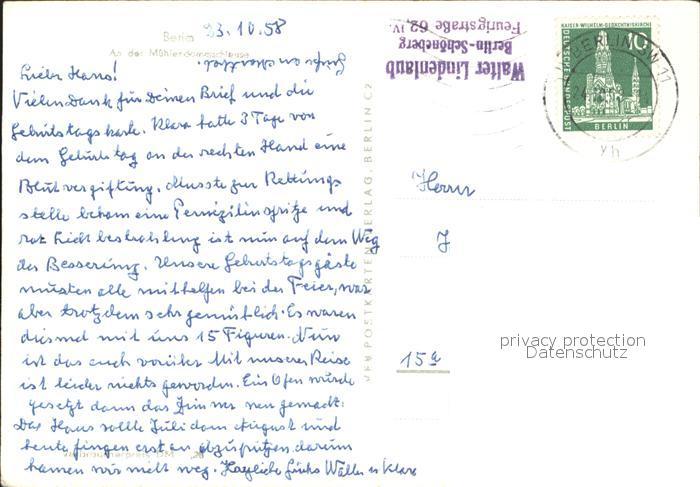 Berlin
An der Mühlendammschleuse
23.10.58
Lieber Hans!
Vielen Dank für Deinen Brief und die
Geburtstagskarte. Klara hatte 3 Tage vor
dem Geburtstag an der rechten Hand eine
Blutvergiftung. Musste zur Rettungs
stelle bekam eine Penizilinspritze und
rot Licht bestrahlung ist nun auf dem Weg
der Besserung. Unsere Geburtstagsgäste
mußten alle mithelfen bei der Feier, war
aber trotzdem sehr gemütlich. Es waren
diesmal mit uns 15 Figuren. Nun
ist das auch vorüber Mit unserer Reise
ist leider nichts geworden. Ein Ofen wurde
gesetzt dann das Zimmer neu gemacht.
Das Haus sollte Juli dann August und
heute fingen erst an abzuputzen darum
kamen wir nicht weg. Herzliche Grüße Walter u Klara
VEB POSTKARTENVERLAG, BERLIN C2
Walter Lindenlaub
Berlin-Schöneberg
Feurigstraße 62. IV.
KAISER-WILHELM-GEDÄCHTNISKIRCHE
DEUTSCHE BUNDESPOST
10
BERLIN
BERLIN SW 11
Herrn
J
15a
privacy protection
Datenschutz